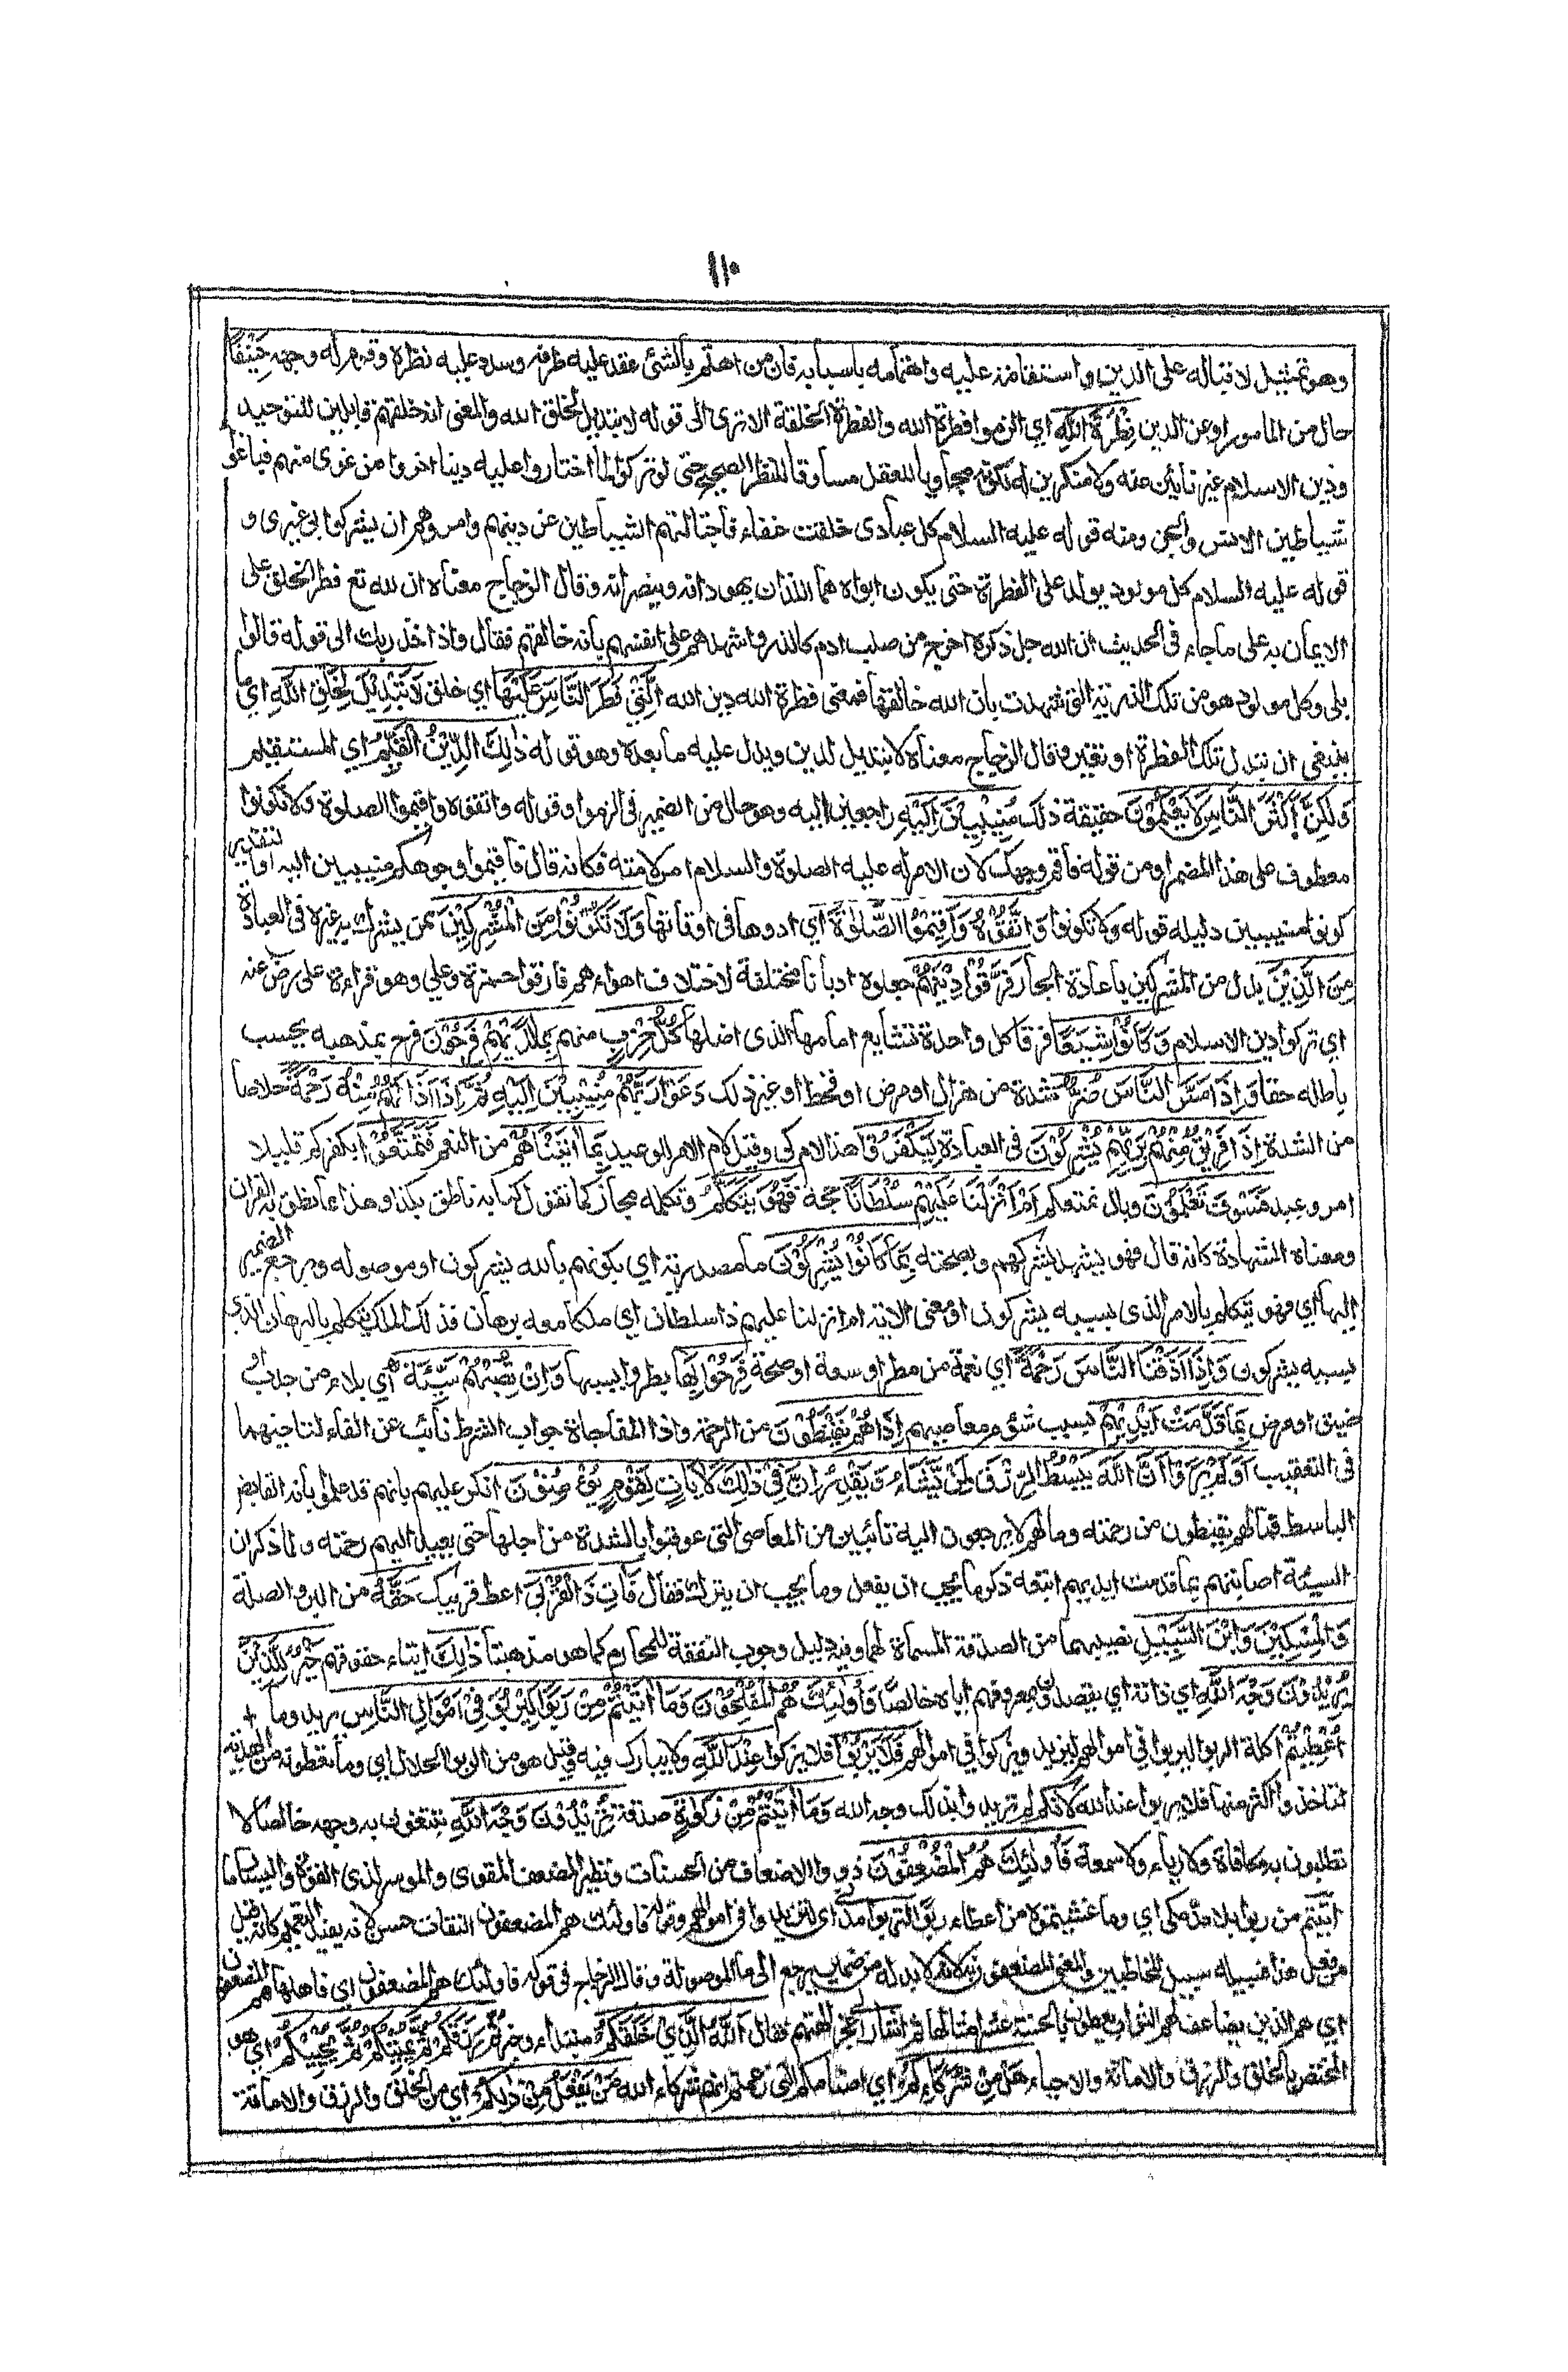 ١١٠
وهو تمثيل لاقباله على الدين واستقامته عليه واهتمامه باسبابه فان من اهتم بالشئ عقد عليه طرفه وسدد عليه نظره وقوم له وجهه حَنِيْفًا
حال من المامور او عن الدين فِطْرَةَ اللّٰهِ اي الزموا فطرة الله والفطرة الخلقة الا ترى الى قوله لا تبديل لخلق الله والمعنى انه خلقهم قابلين للتوحيد
ودين الاسلام غير نائين عنه ولا منكرين له لكونه مجاوبا للعقل مساوقا للنظر الصحيح حتى لو تركوا لما اختاروا عليه دينا اخر وما من غوى منهم فباغوا
شياطين الانس والجن ومنه قوله عليه السلام كل عبادى خلقت حنفاء فاجتالتهم الشياطين عن دينهم وامروهم ان يشركوا بى غيرى و
قوله عليه السلام كل مولود يولد على الفطرة حتى يكون ابواه هما اللذان يهودانه وينصرانه وقال الزجاج معناه ان لله تع فطر الخلق على
الايمان به على ماجاء فى الحديث ان الله جل ذكره اخرج من صلب ادم كالذر واشهدهم على انفسهم بانه خالقهم فقال واذ اخذ ربك الى قوله قالوا
بلى وكل مولود هو من تلك الذرية التى شهدت بان الله خالقها فمعنى فطرة الله دين الله الَّتِيْ فَطَرَ النَّاسَ عَلَيْهَا اي خلق لَا تَبْدِيْلَ لِخَلْقِ اللّٰهِ اي ما
ينبغى ان تبدل تلك الفطرة او تغير وقال الزجاج معناه لا تبديل لدين ويدل عليه ما بعده وهو قوله ذٰلِكَ الدِّيْنُ الْقَيِّمُ اي المستقيم
وَلٰكِنَّ اَكْثَرَ النَّاسِ لَا يَعْلَمُوْنَ حقيقة ذلك مُنِيْبِيْنَ اِلَيْهِ راجعين اليه وهو حال من الضمير فى الزموا وقوله واتقوه واقيموا الصلوة ولا تكونوا
معطوف على هذا المضمر او من قوله فاقم وجهك لان الامر له عليه الصلوة والسلام امر لامته فكانه قال فاقيموا وجوهكم منيبين اليه او التقدير
كونوا منيبين دليله قوله ولا تكونوا وَاتَّقُوْهُ وَاَقِيْمُوا الصَّلٰوةَ اي ادوها فى اوقاتها وَلَا تَكُوْنُوْا مِنَ الْمُشْرِكِيْنَ ممن يشرك به غيره فى العبادة
مِنَ الَّذِيْنَ بدل من المشركين باعادة الجار فَرَّقُوْا دِيْنَهُمْ جعلوه اديانا مختلفة لاختلاف اهواءهم فارقوا حمزة وعلي وهو قراءة على رضى عنه
اي تركوا دين الاسلام وَكَانُوْا شِيَعًا فرقا كل واحدة تشايع امامها الذى اضلها كُلُّ حِزْبٍ منهم بِمَا لَدَيْهِمْ فَرِحُوْنَ فرح بمذهبه يحسب
باطله حقا وَاِذَا مَسَّ النَّاسَ ضُرٌّ شدة من هزال او مرض او قحط او غير ذلك دَعَوْا رَبَّهُمْ مُنِيْبِيْنَ اِلَيْهِ ثُمَّ اِذَا اَذَاقَهُمْ مِنْهُ رَحْمَةً خلاصا
من الشدة اِذَا فَرِيْقٌ مِنْهُمْ بِرَبِّهِمْ يُشْرِكُوْنَ فى العبادة لِيَكْفُرُوْا هذا لام كى وقيل لام الامر للوعيد بِمَا اٰتَيْنَاهُمْ من النعم فَتَمَتَّعُوْا بكفركم قليلا
امر وعيد فَسَوْفَ تَعْلَمُوْنَ وبال تمتعكم اَمْ اَنْزَلْنَا عَلَيْهِمْ سُلْطَانًا حجة فَهُوَ يَتَكَلَّمُ وتكلمه مجاز كما تقول كتابه ناطق بكذا وهذا مما نطق به القران
ومعناه الشهادة كانه قال فهو يشهد بشركهم وبصحته بِمَا كَانُوْا بِهٖ يُشْرِكُوْنَ ما مصدرية اي بكونهم بالله يشركون او موصوله ويرجع الضمير
اليها اي فهو يتكلم بالامر الذى بسببه يشركون او معنى الاية ام انزلنا عليهم ذا سلطان اي ملكا معه برهان فذلك الملك يتكلم بالبرهان الذى
بسببه يشركون وَاِذَا اَذَقْنَا النَّاسَ رَحْمَةً اي نعمة من مطر او سعة او صحة فَرِحُوْا بِهَا بطروا بسببها وَاِنْ تُصِبْهُمْ سَيِّئَةٌ اي بلاء من جدب او
ضيق او مرض بِمَا قَدَّمَتْ اَيْدِيْهِمْ بسبب شؤم معاصيهم اِذَا هُمْ يَقْنَطُوْنَ من الرحمة واذا المفاجاة جواب الشرط نائب عن الفاء لتاخيهما
فى التعقيب اَوَلَمْ يَرَوْا اَنَّ اللّٰهَ يَبْسُطُ الرِّزْقَ لِمَنْ يَّشَآءُ وَيَقْدِرُ اِنَّ فِيْ ذٰلِكَ لَاٰيَاتٍ لِقَوْمٍ يُؤْمِنُوْنَ انكر عليهم بانهم قد علموا بانه القابض
الباسط فما لهم يقنطون من رحمته وما لهم لا يرجعون اليه تائبين من المعاصى التى عوقبوا بالشدة من اجلها حتى يعيد اليهم رحمته ولما ذكر ان
السيئة اصابتهم بما قدمت ايديهم اتبعه ذكر ما يجب ان يفعل وما يجب ان يترك فقال فَاٰتِ ذَا الْقُرْبٰى اعط قريبك حَقَّهٗ من البر والصلة
وَالْمِسْكِيْنَ وَابْنَ السَّبِيْلِ نصيبهما من الصدقة المسماة لهما وفيه دليل وجوب النفقة للمحارم كما هو مذهبنا ذٰلِكَ ايتاء حقوقهم خَيْرٌ لِّلَّذِيْنَ
يُرِيْدُوْنَ وَجْهَ اللّٰهِ اي ذاته اي يقصدون بمعروفهم اياه خالصا وَاُولٰئِكَ هُمُ الْمُفْلِحُوْنَ وَمَا اٰتَيْتُمْ مِنْ رِبًوا لِيَرْبُوَ فِيْ اَمْوَالِ النَّاسِ يريد وما
اعطيتم اكلة الربوا ليربوا فى اموالهم ليزيد ويزكوا فى اموالهم فَلَا يَرْبُوْا فلا يزكوا عِنْدَ اللّٰهِ ولا يبارك فيه وقيل هو من الربوا الحلال اي وما تعطونه من الهدية
لتاخذوا اكثر منها فلا يربوا عند الله لانكم لم تريدوا بذلك وجه الله وَمَا اٰتَيْتُمْ مِنْ زَكٰوةٍ صدقة تُرِيْدُوْنَ وَجْهَ اللّٰهِ تبتغون به وجهه خالصا لا
تطلبون به مكافاة ولا رياء ولا سمعة فَاُولٰئِكَ هُمُ الْمُضْعِفُوْنَ ذوو الاضعاف من الحسنات ونظير المضعف المقوى والموسر لذى القوة واليسار
اتيتم من ربوا بلا مد مكى اي وما غشيتموه من اعطاء ربوا لتربوا مدنى اى لتزيدوا فى اموالهم وقوله فاولئك هم المضعفون التفات حسن لانه يفيد التعميم كانه قيل
من فعل هذا فسبيله سبيل المخاطبين والمعنى المضعفون به لانه لا بد له من ضمير يرجع الى ما الموصولة وقال الزجاج فى قوله فاولئك هم المضعفون اي فاهلها هم المضعفون
اي هم الذين يضاعف لهم الثواب يعطون بالحسنة عشر امثالها ثم اشار الى عجز الهتهم فقال اَللّٰهُ الَّذِيْ خَلَقَكُمْ مبتداء وخبر ثُمَّ رَزَقَكُمْ ثُمَّ يُمِيْتُكُمْ ثُمَّ يُحْيِيْكُمْ اي هو
المختص بالخلق والرزق والاماتة والاحياء هَلْ مِنْ شُرَكَآئِكُمْ اي اصنامكم التى زعمتم انهم شركاء الله مَنْ يَّفْعَلُ مِنْ ذٰلِكُمْ اي من الخلق والرزق والاماتة